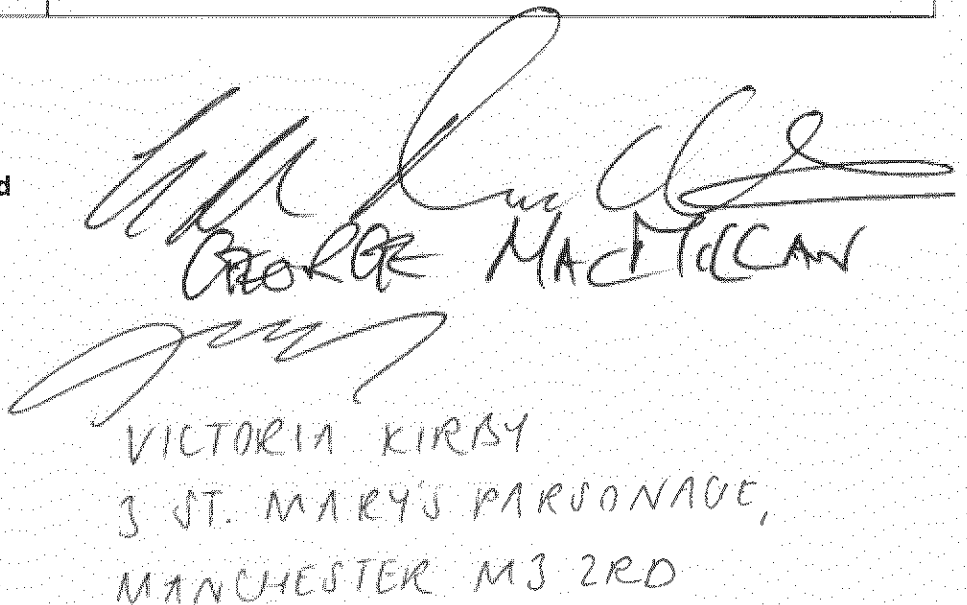 d
GEORGE MACMILLAN
VICTORIA KIRBY
3 ST. MARY'S PARSONAGE,
MANCHESTER M3 2RD